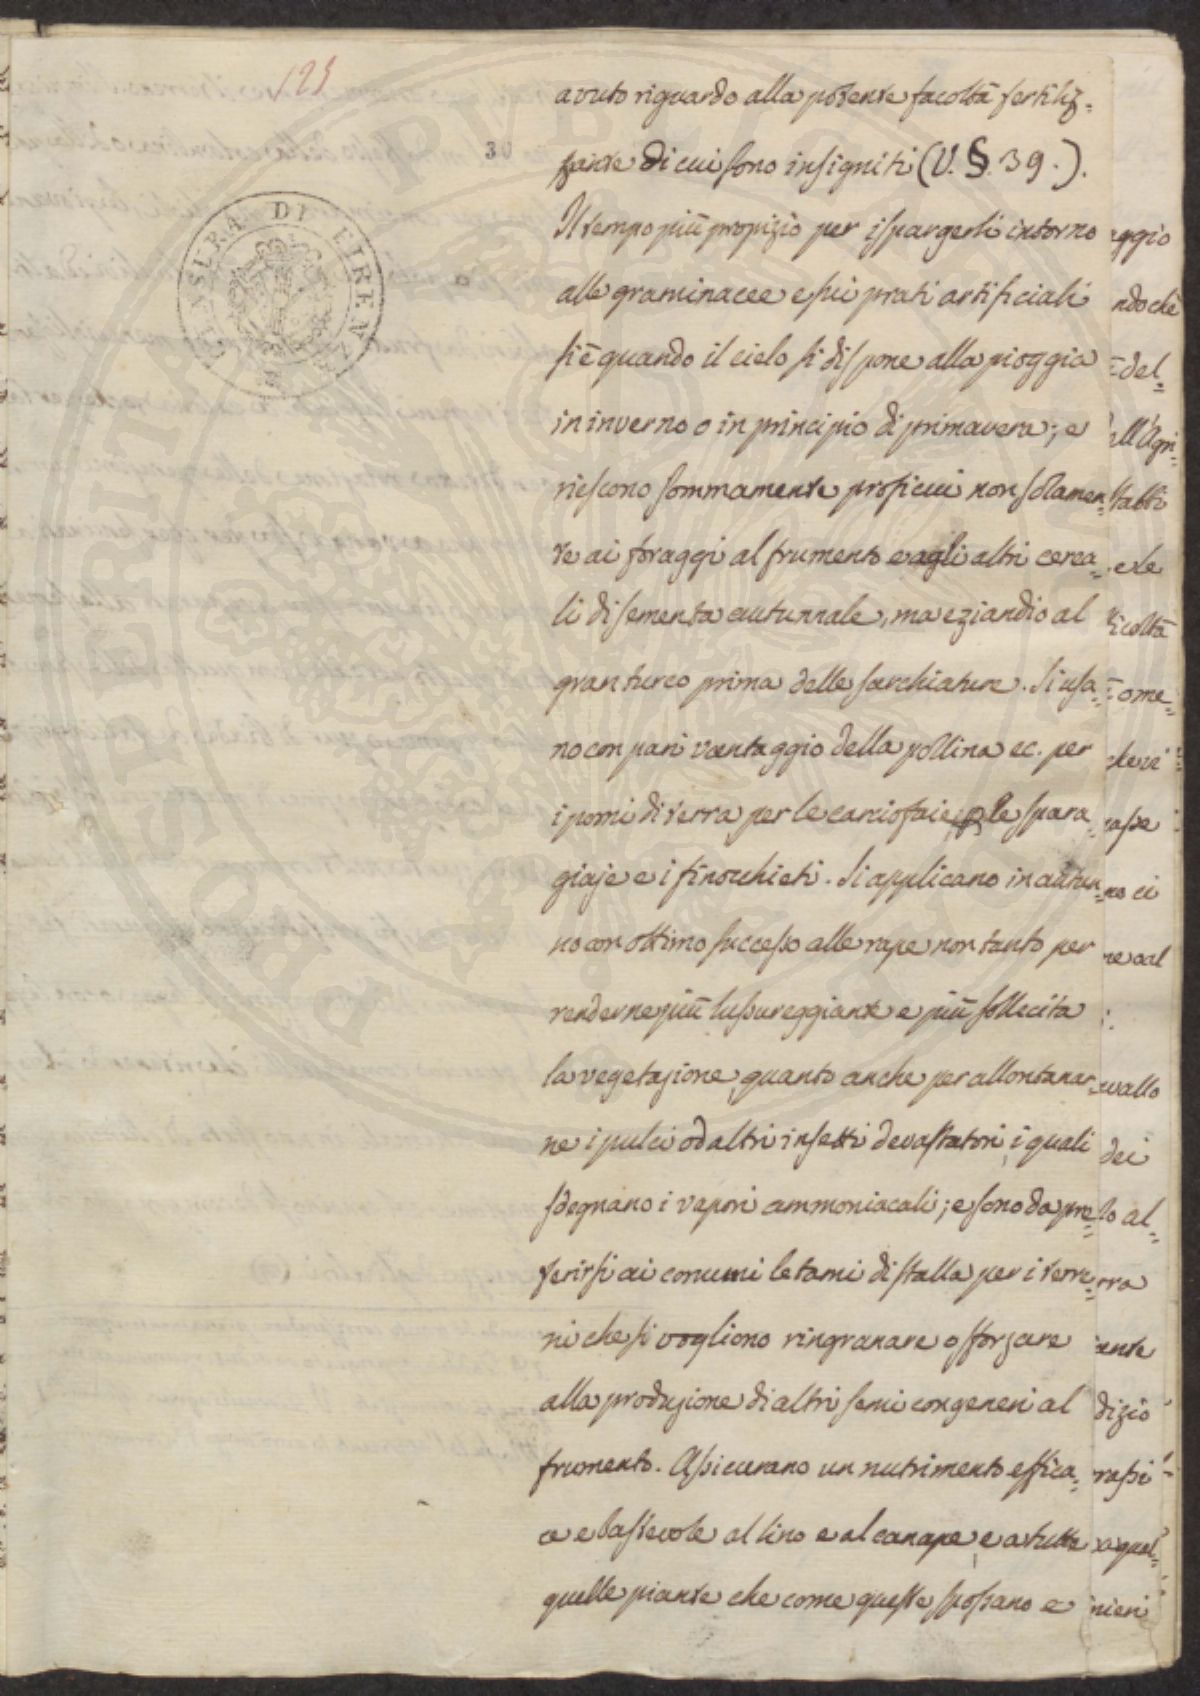 123
30
CENSURA DI FIRENZE
avuto riguardo alla potente facoltà fertiliz=
zante di cui sono insigniti (V. §. 39.).
Il tempo più propizio per ispargerli intorno
alle graminacee e sui prati artificiali
si è quando il cielo si dispone alla pioggia
in inverno o in principio di primavera; e
riescono sommamente proficui non solamen=
te ai foraggi al frumento e agli altri cerea=
li di sementa autunnale, ma eziandio al
granturco prima delle sarchiature. Si usa=
no con pari vantaggio della pollina ec. per
i pomi di terra per le carciofaie, p le spara=
giaje e i finocchieti. Si applicano in autun=
no con ottimo successo alle rape non tanto per
renderne più lussureggiante e più sollecita
la vegetazione, quanto anche per allontanar=
ne i pulci od altri insetti devastatori, i quali
sdegnano i vapori ammoniacali; e sono da pre=
ferirsi ai comuni letami di stalla per i terre=
ni che si vogliono ringranare o sforzare
alla produzione di altri semi congeneri al
frumento. Assicurano un nutrimento effica=
ce e bastevole al lino e al canape, e a tutte
quelle piante che come queste spossano e
aggio
ndochè
del=
all'Agri=
e le
icoltà
ome=
rasse
no ci
ne al
avallo
dei
lo al=
rra
ante
dizio
rassi
quel=
nieri